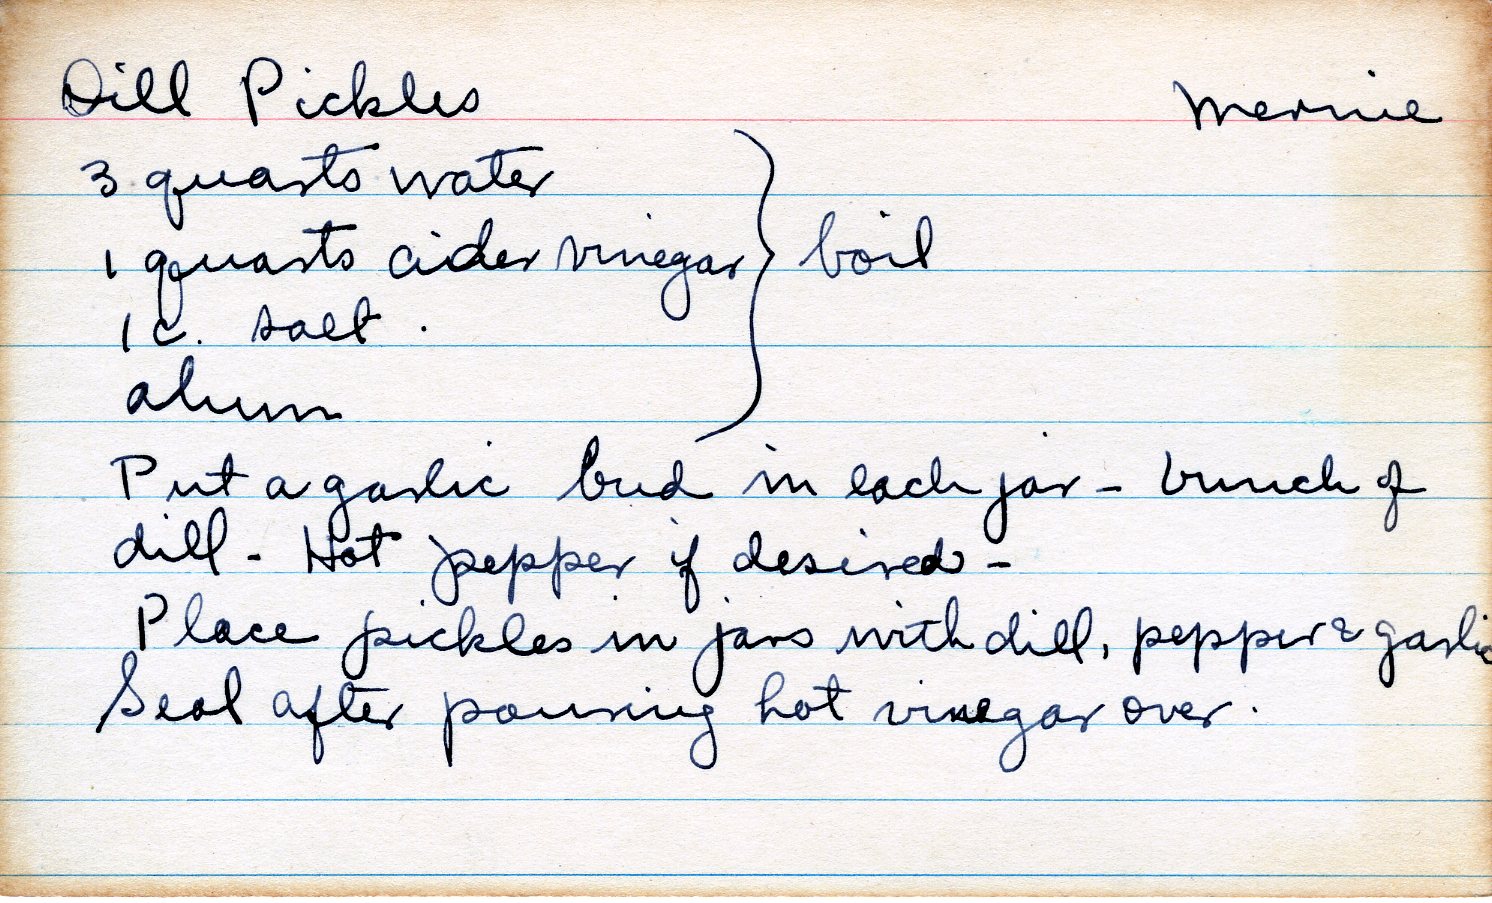 Dill Pickles Mernie
3 quarts water
1 quarts cider vinegar } boil
1 c. salt.
alum
Put a garlic bud in each jar - bunch of
dill - Hot pepper if desired -
Place pickles in jars with dill, pepper & garlic
Seal after pouring hot vinegar over.